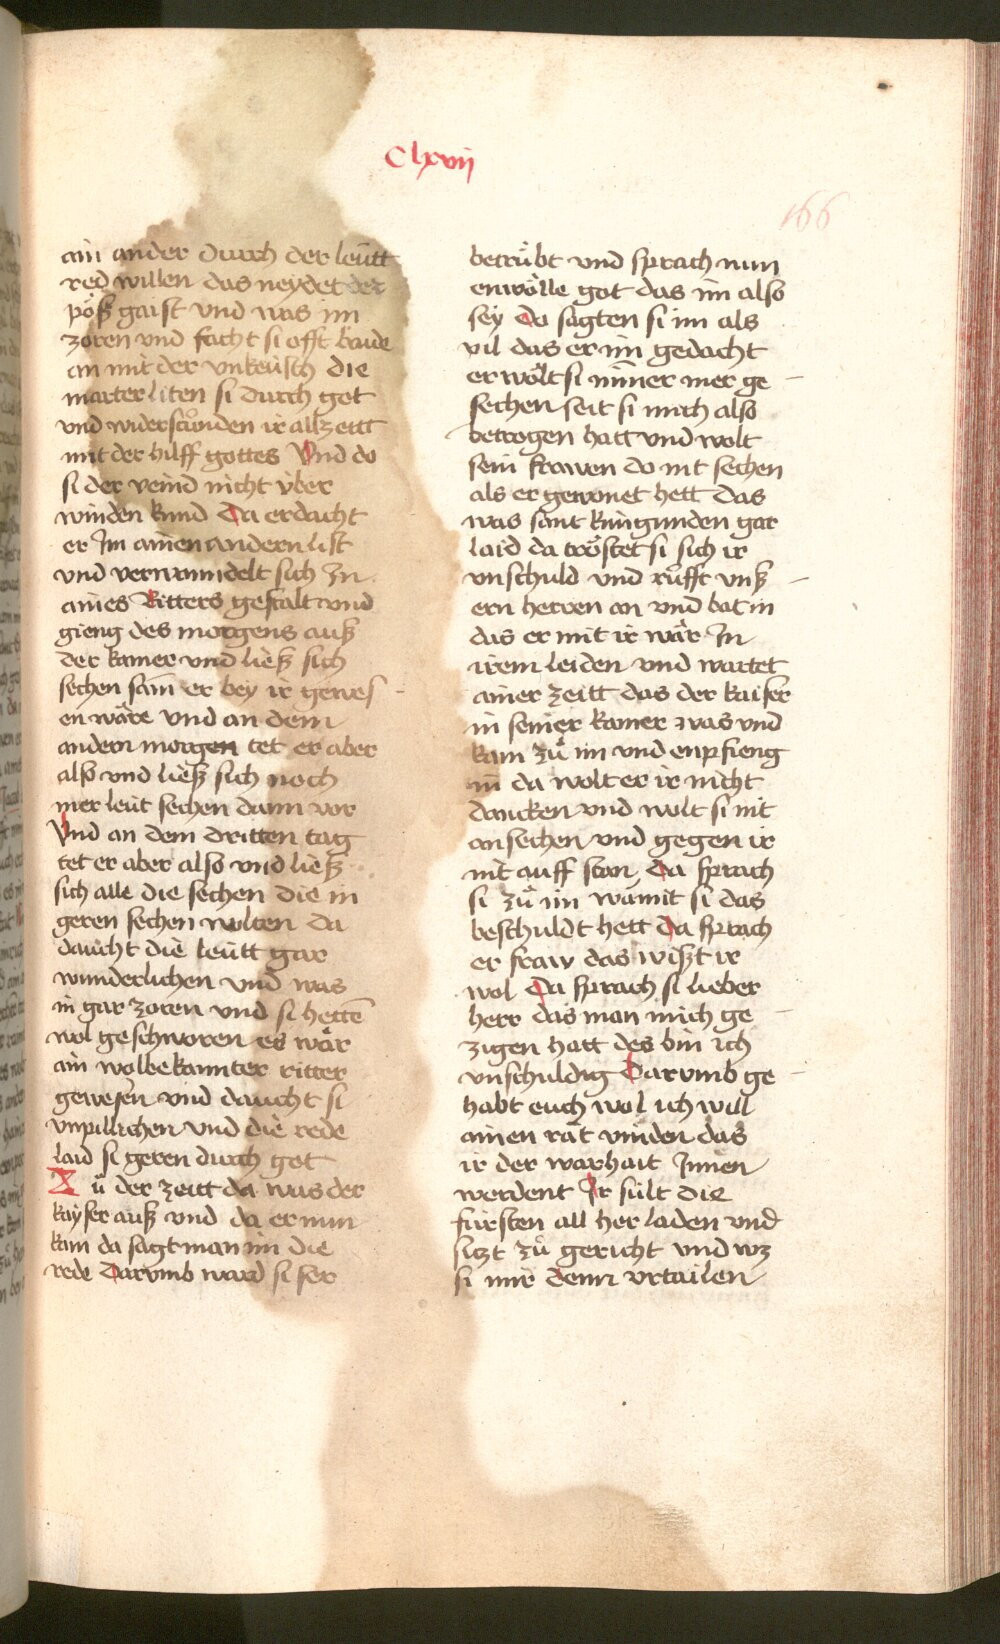 Clxvij
166
ain ander durch der leütt
red willen das neydet der
pöß gaist vnd was im
zoren vnd facht si offt baide
an mit der vnkeüsch die
marter liten si durch got
vnd widerstůnden ir allzeitt
mit der hilff gottes Vnd do
si der veind nicht über
winden kund Da erdacht
er Im ainen andern list
vnd verwanndelt sich In
aines Ritters gestalt vnd
gieng des morgens auß
der kamer vnd ließ sich
sechen sam er bey ir gewes
en wäre vnd an dem
andern morgen tet er aber
also vnd ließ sich noch
mer leüt sechen dann vor
Vnd an dem dritten tag
tet er aber also vnd ließ
sich alle die sechen die in
geren sechen wolten da
daucht die leütt gar
wunderlichen vnd was
in gar zoren vnd si hettē
wol geschworen es wär
ain wolbekannter ritter
gewesen vnd daucht si
vnpillichen vnd die rede
laid si geren durch got
Zů der zeitt da was der
kayser auß vnd da er nun
kam da sagt man im die
rede Darvmb ward si ser
betrübt vnd sprach nun
enwölle got das im also
sey Do sagten si im als
vil das er im gedacht
er wölt si nīmer mer ge
sechen seit si mich also
betrogen hatt vnd wolt
sein frawen do nit sechen
als er gewonet hett das
was sant kungunden gar
laid da tröstet si sich ir
vnschuld vnd růfft vnß
ern herren an vnd bat in
das er mit ir wär In
irem leiden vnd wartet
ainer zeitt das der kaiser
in seiner kamer was vnd
kam zů im vnd enpfieng
in da wolt er ir nicht
dancken vnd wolt si nit
an sechen vnd gegen ir
nit auff stan Da sprach
si zů im wamit si das
beschuldt hett Da sprach
er fraw das wißt ir
wol Da sprach si lieber
herr das man mich ge
zigen hatt des bin ich
vnschuldig Darvmb ge
habt euch wol ich will
ainen rat vinden das
ir der warhait Innen
werdent Ir sült die
fürsten all her laden vnd
siczt zů gericht vnd wz
si mir denn vrtailen